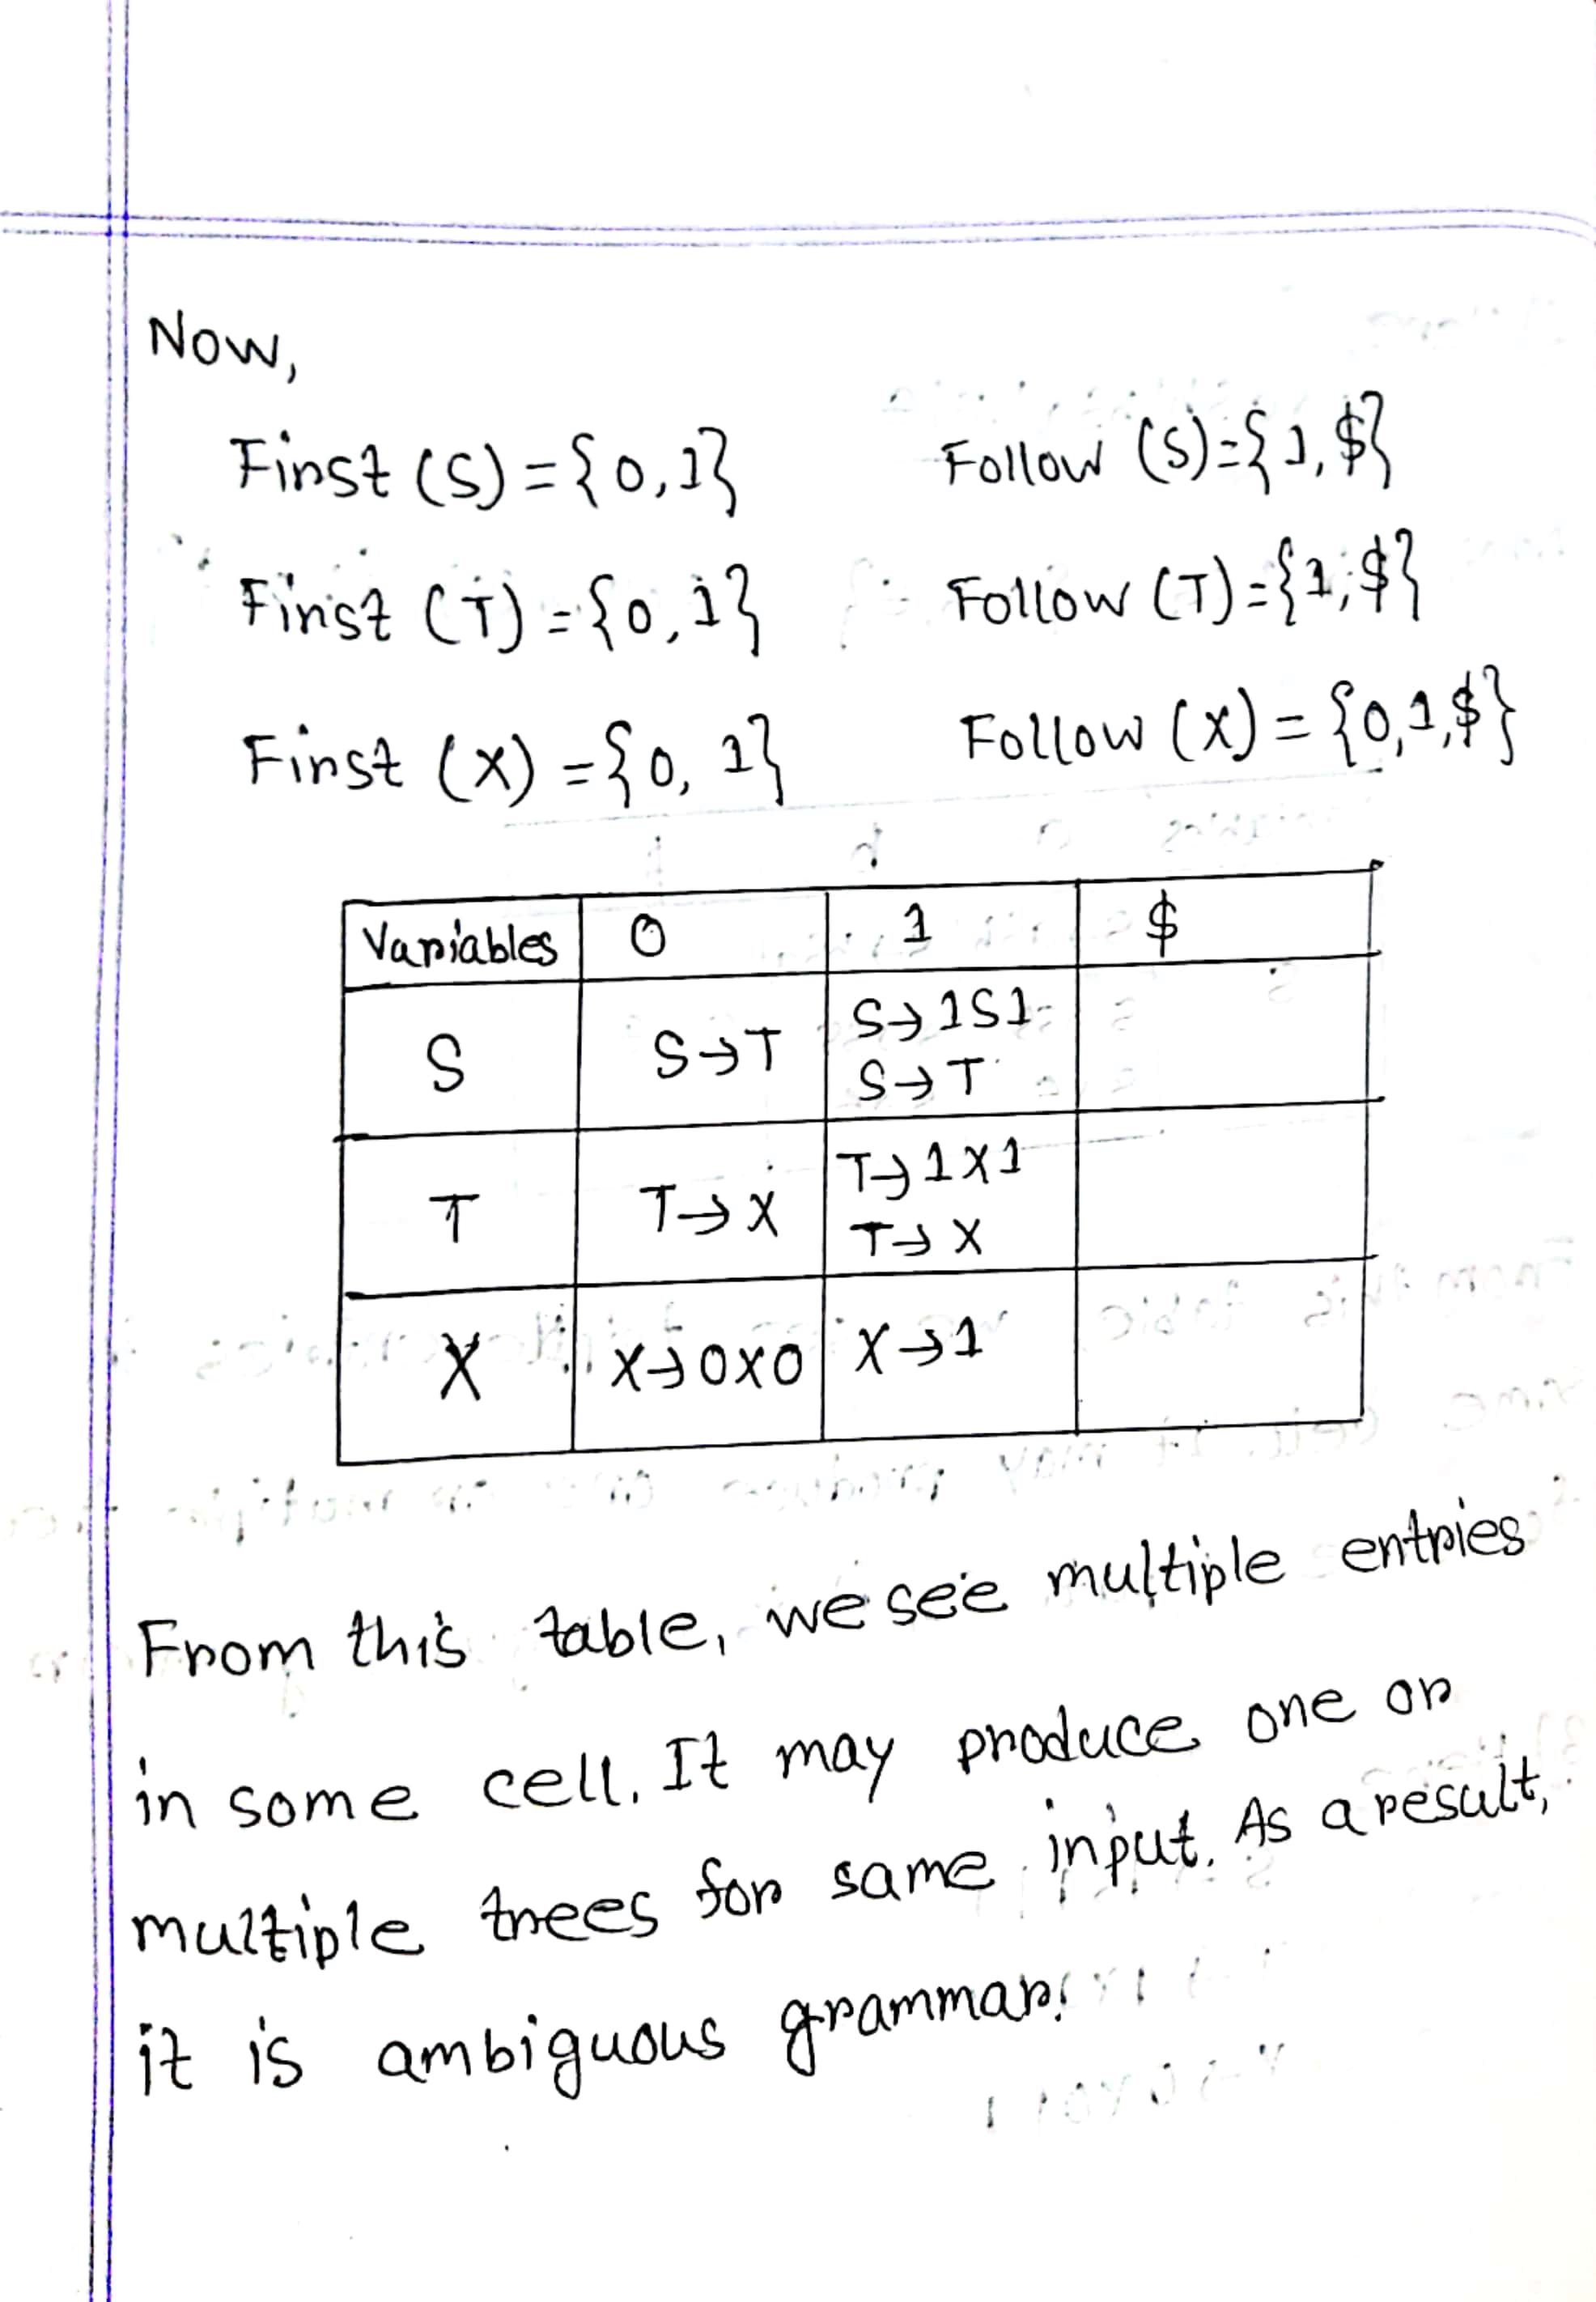 Now,
First (S) = {0,1} Follow (S) = {1,$}
First (T) = {0,1} Follow (T) = {1,$}
First (X) = {0,1} Follow (X) = {0,1,$}
Variables 0 1 $
S S→T S→1S1
S→T
T T→X T→1X1
T→X
X X→0X0 X→1
From this table, we see multiple entries
in some cell. It may produce one or
multiple trees for same input. As a result,
it is ambiguous grammar.